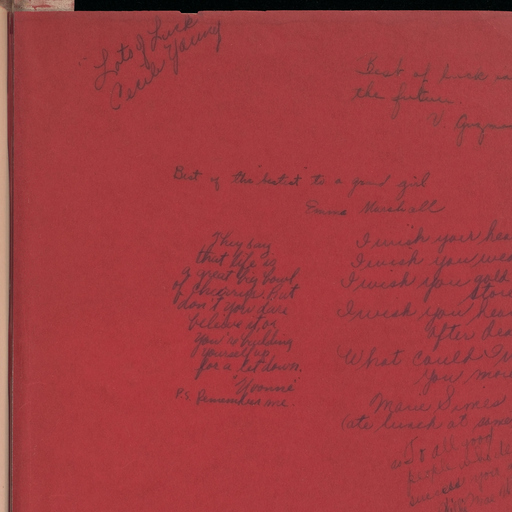 Lots of Luck
Cecile Young
Best of luck in
the future.
V. Guzman
Best of the "bestest" to a good girl
Emma Marshall
They say
that life is
a great big bowl
of cherries. But
don't you dare
believe it or
you're building
yourself up
for a let down.
"Yvonne"
P.S. Remember me.
I wish you
I wish you
I wish you gold
I wish you
after
What could I
you more
Marie Simes
(ate lunch at same
To all good
people who
success